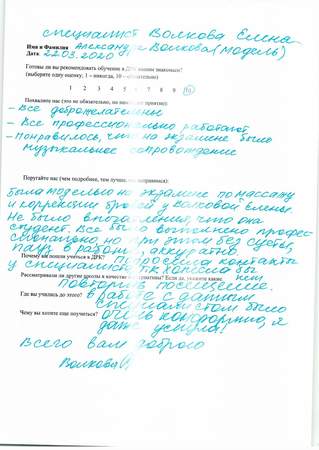 специалист Волкова Елена
Имя и Фамилия Александра Волкова (модель)
Дата 22.03.2020
Готовы ли вы рекомендовать обучение в ДРК вашим знакомым?
(выберите одну оценку; 1 – никогда, 10 – обязательно)
1 2 3 4 5 6 7 8 9 10
Похвалите нас (это не обязательно, но нам будет приятно):
– Все доброжелательны
– Все профессионально работают
– понравилось, что на экзамене было
музыкальное сопровождение
Поругайте нас (чем подробнее, тем лучше мы исправимся):
Была моделью на экзамене по массажу
и коррекции бровей у Волковой Елены.
Не было впечатления, что она
студент. Все было выполнено профес-
сионально, но при этом без суеты,
пауз в работе, аккуратно.
Почему вы пошли учиться в ДРК? Попросила контакты
у специалиста, т.к. хотела бы
Рассматривали ли другие школы в качестве альтернативы? Если да, укажите какие.
повторить посещение.
Где вы учились до этого? в работе с данным
специалистом было
Чему вы хотите еще поучиться? очень комфортно, я
даже уснула!
Всего вам доброго
Волкова